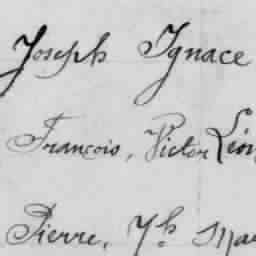 Joseph Ignace
François, Victor Léon
Pierre, Jh Mar